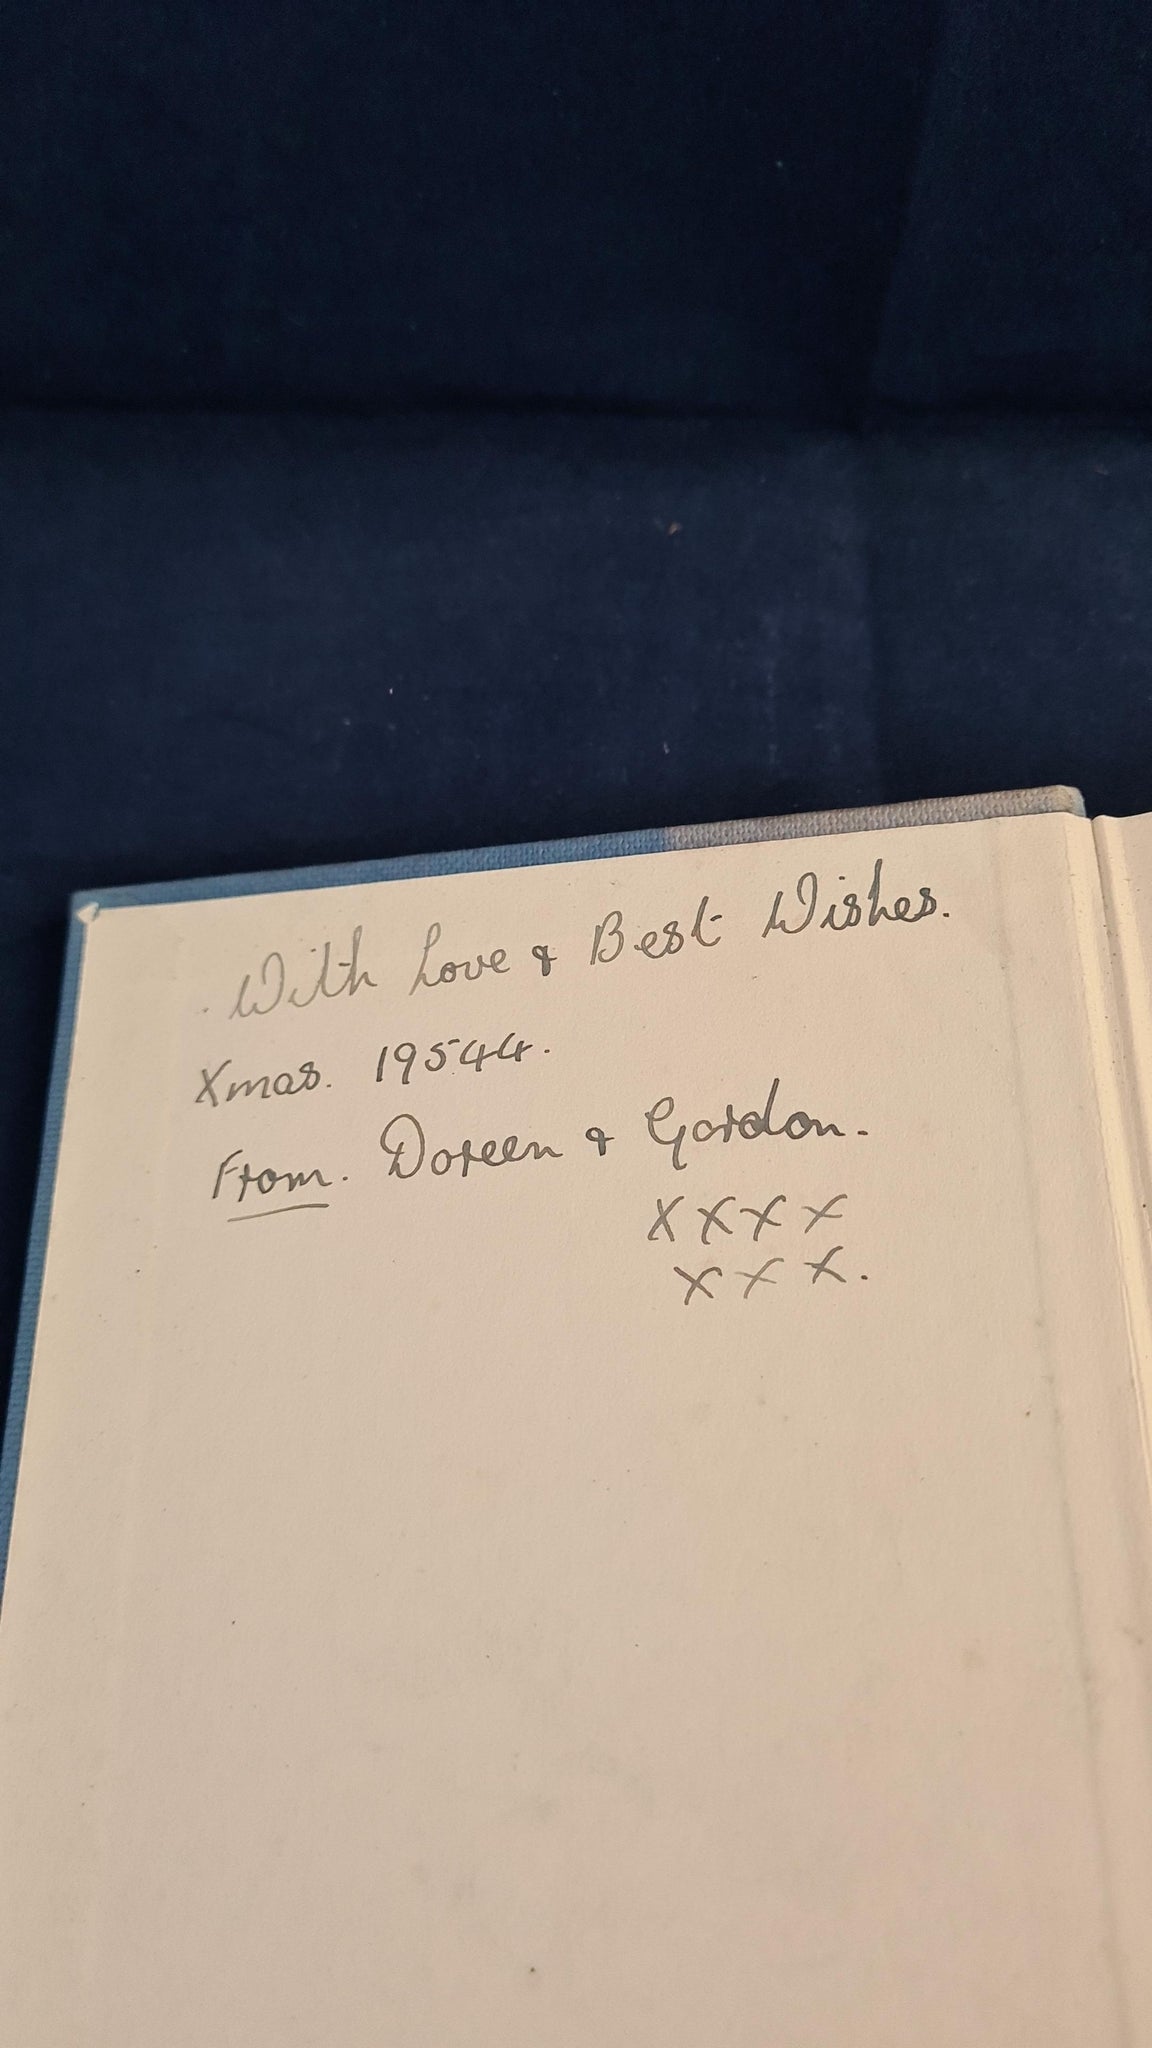 With Love & Best Wishes.
Xmas. 19544.
From. Doreen & Gordon.
X X X X
X X X.